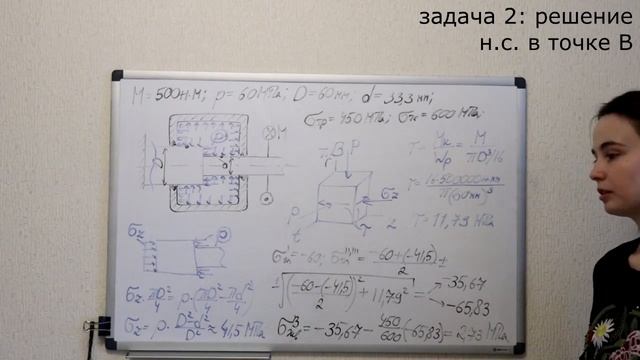 задача 2: решение
н.с. в точке В
M = 500 Н·м; p = 60 МПа; D = 60 мм; d = 33,3 мм;
σтр = 450 МПа; σтс = 600 МПа;
M
B P
τ = Mк/Wp = M/(πD³/16)
τ = 16·500000 Н·мм/π(60мм)³
τ = 11,79 МПа
σz
p
t
τ
z
σz
p
σz · πD²/4 = p·(πD²/4 − πd²/4)
σz = p · (D²−d²)/D² ≈ 41,5 МПа
= −60; = (−60+(−41,5))/2 ±
± √((−60−(−41,5))/2)² + 11,79² = −35,67
−65,83
= −35,67 − 450/600 (−65,83) = 2,73 МПа